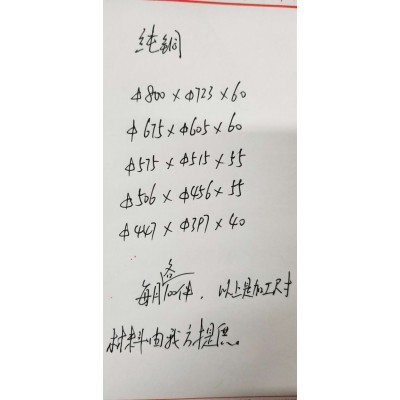 纯铜
Φ800×Φ723×60
Φ675×Φ605×60
Φ575×Φ515×55
Φ506×Φ456×55
Φ447×Φ397×40
每月各100件，以上是加工尺寸
材料由我方提供。